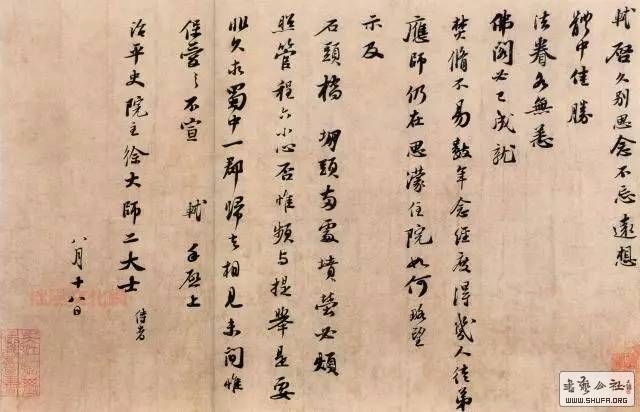 軾啓久别思念不忘遠想
體中佳勝
法眷各無恙
佛閣必已成就
焚脩不易數年念經度得幾人徒弟
應師仍在思濛住院如何略望
示及
石頭橋堋頭兩處墳塋必煩
照管程六小心否惟頻与提舉是要
非久求蜀中一郡歸去相見未間惟
保愛之不宣 軾手啓上
治平史院主徐大師二大士 侍者
八月十八日
書藝公社
WWW.SHUFA.ORG